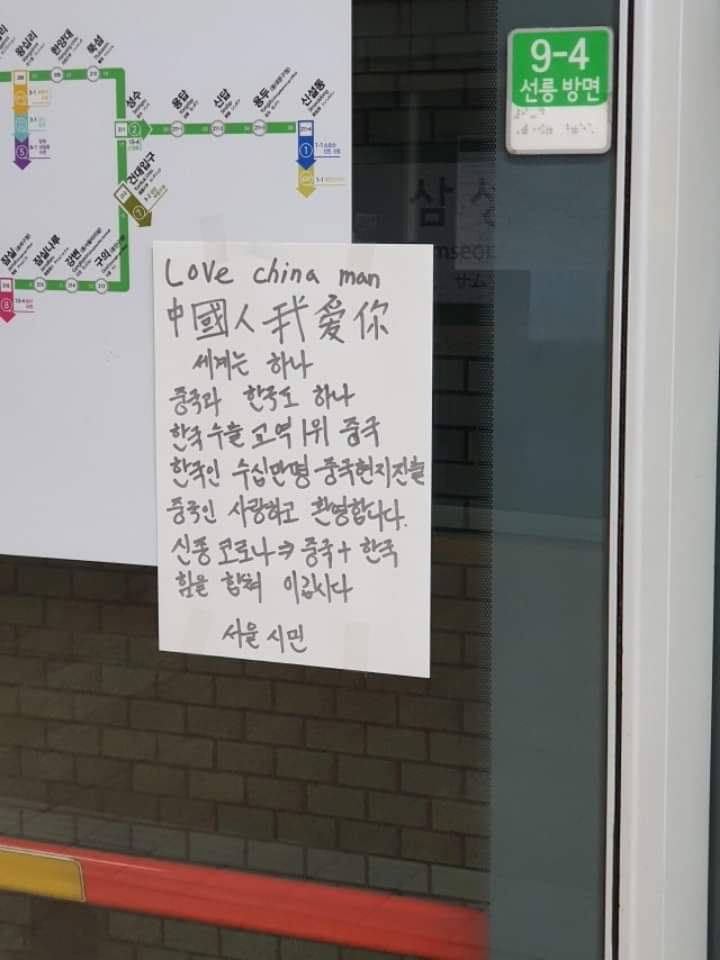 왕십리
한양대
뚝섬
성수
용답
신답
용두
신설동
건대입구
구의
강변
잠실나루
잠실
9-4
선릉 방면
삼성
Love china man
中國人 我 爱 你
세계는 하나
중국과 한국도 하나
한국 수출 교역 1위 중국
한국인 수십만명 중국현지진출
중국인 사랑하고 환영합니다.
신종 코로나 ⇒ 중국 + 한국
힘을 합쳐 이깁시다
서울 시민